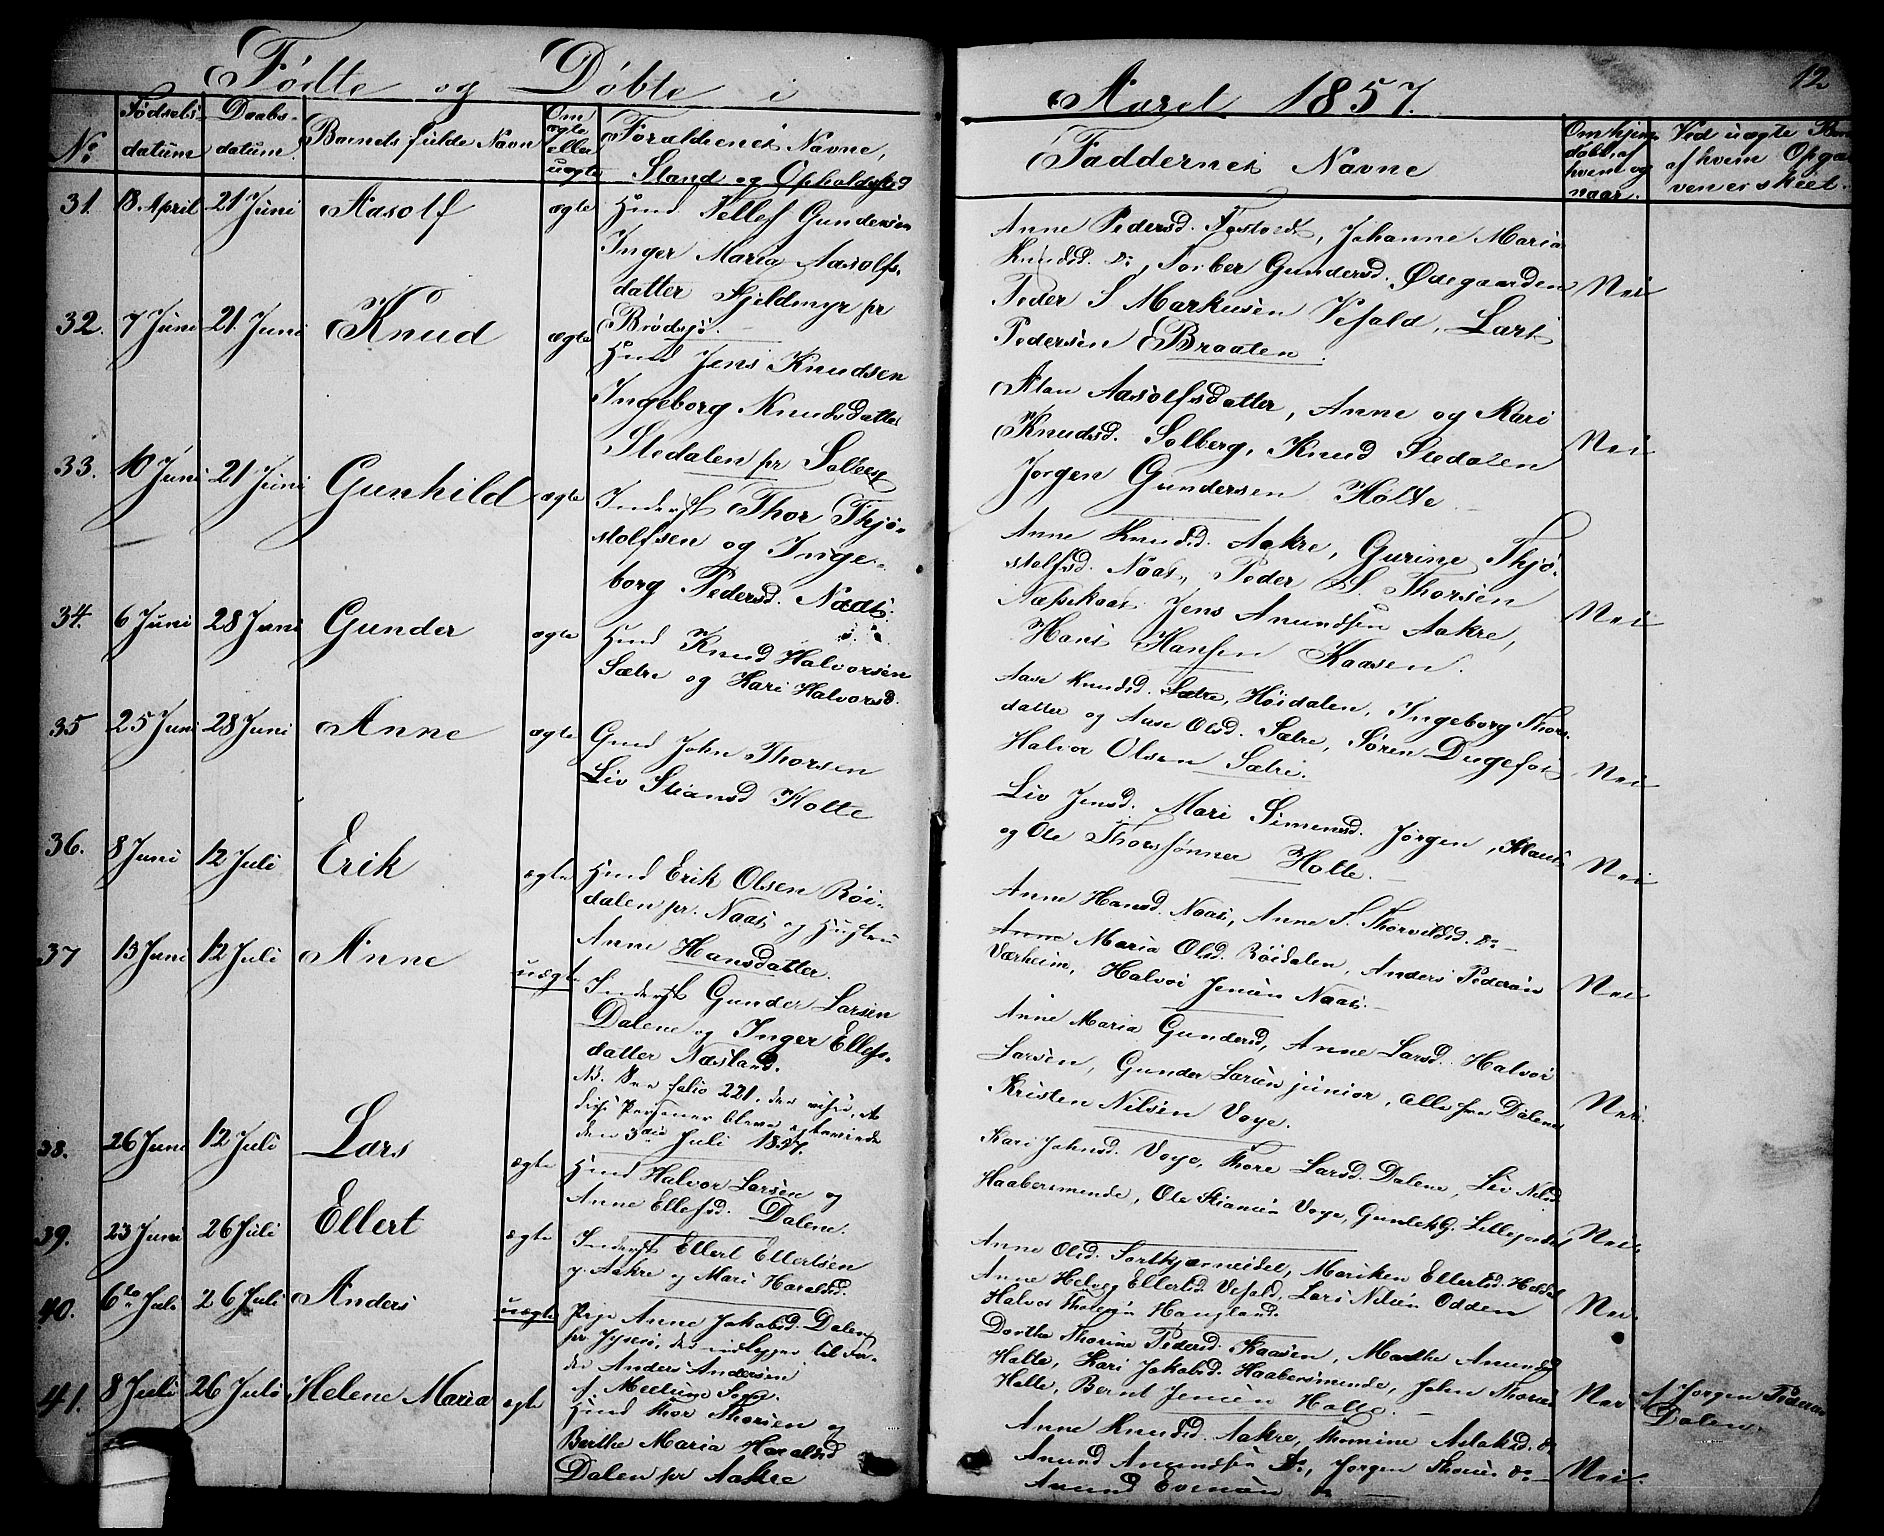 Fødte og Døbte i
Aaret 1857.
12
No
Fødsels-
datum
Daabs-
datum.
Barnets fulde Navn
Om
ægte
eller
uægte
Forældrenes Navne,
Stand og Opholdssted
Faddernes Navne
Om hjem-
døbt, af
hvem og
naar.
Ved uægte Børn
af hvem Opga-
ven er skeet.
31. 18. April 21 Juni Aasolf ægte
Hmd Tellef Gundersen
Inger Maria Aasolfs-
datter Fjeldmyr pr
Brødsjø.
Anne Pedersd. Fosvold, Johanne Maria
Knudsd. do, Torber Gundersd. Ødegaarden
Peder S Markusen Vefald, Lars
Pedersen Braaten.
Nei
32. 7 Juni 21. Juni Knud ægte
Hmd Jens Knudsen
Ingeborg Knudsdatter
Stedalen pr Solberg
Aasolfsdatter, Anne og Kari
Knudsd. Solberg, Knud Stedalen
Jørgen Gundersen Holte
Nei
33. 10 Juni 21 Juni Gunhild ægte
Inderst Thor Thjø-
stolfsen og Inge-
borg Pedersd. Næds
Anne Knudsd. Aakre, Gurine Thjø-
stolfsd. Naas, Peder S. Thorsen
Jens Anundsen Aakre,
Hans Hansen Kaasen.
Nei
34. 6 Juni 28 Juni Gunder ægte
Hmd Knud Halvorsen
Sætre og Kari Halvorsd.
Aase Knudsd. Sætre, Høidalen, Ingeborg Thors-
datter og Aase Olsd. Sætre, Søren Dugefos
Halvor Olsen Sætre.
Nei
35 25 Juni 28 Juni Anne ægte
Gmd John Thorsen
Liv Stiansd Holte
Liv Jensd. Mari Simensd. Jørgen, Hans
og Ole Thorssønner Holte.
Nei
36. 8 Juni 12 Juli Erik ægte
Hmd Erik Olsen Røi-
dalen pr. Naas og Hustru
Anne Hansdatter.
Anne Hansd. Naas, Anne S. Thorvildsd. do
Anne Maria Olsd. Røidalen, Anders Pedersen
Værheim, Halvor Jensen Naas.
Nei
37 13 Juni 12 Juli Anne uægte
Inderst Gunder Larsen
Dalene og Inger Ellefs-
datter Næsland.
NB. See folio 221, der vises, at
disse Personer bleve egteviede
den 3die Juli 1857.
Anne Maria Gundersd, Anne Larsd. Halvor
Larsen, Gunder Larsen junior, alle fra Dalene
Kristen Nilsen Voje.
Nei.
38. 26 Juni 12 Juli Lars ægte
Hmd Halvor Larsen og
Anne Ellefsd. Dalene.
Kari Johnsd. Voje, Thore Larsd. Dalene, Liv Nilsd
Haabersmende, Ole Stiansen Voje, Gunlek G. Lillejordet
Nei
39. 23 Juni 26 Juli Ellert ægte
Inderst Ellert Ellertsen
p. Aakre og Mari Haralsd.
Anne Olsd. Sortkjærneidet, Mariken Ellertsd. Holdal
Anne Helvig Ellertsd Vefald, Lars Nilsen Odden
Halvor Tholesen Haugland
Nei.
40. 6te Juli 26 Juli Anders uægte
Pige Anne Jakobsd. Dalen
pr Jyssø, der udlægger til Fa-
der Anders Andersen
f. Meelum Sogn.
Dorthe Thorine Pedersd. Kaasen, Marthe Anundsd
Holte, Kari Jakobsd. Haabersmende, John Thorsen
Holte, Bernt Jensen Holte.
Nei
af Jørgen Pedersen
Dalen.
41. 8 Juli 26 Juli Helene Maria ægte
Hmd Thor Thorsen og
Berthe Maria Haralsd
Dalen pr Aakre
Anne Knudsd. Aakre, Thomine Aslaksd. do
Anund Anundsen do, Jørgen Thorsen do
Anund Evensen do
Nei.